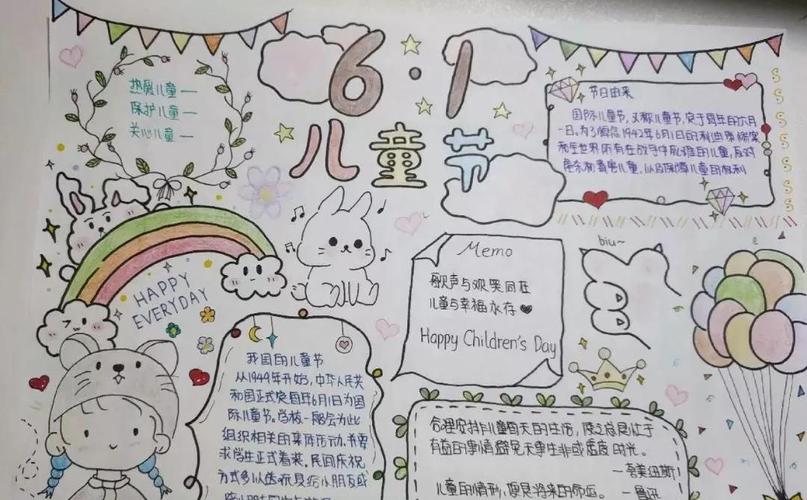 6·1
儿童节
热爱儿童一
保护儿童一
关心儿童一
节日由来
国际儿童节,又称儿童节,定于每年的六月
一日。为了悼念1942年6月1日的利迪策惨案
和全世界所有在战争中死难的儿童,反对
虐杀和毒害儿童,以及保障儿童的权利
HAPPY
EVERYDAY
Memo
歌声与欢笑同在
儿童与幸福永存
Happy Children's Day
biu~
我国的儿童节
从1949年开始,中华人民共
和国正式定每年6月1日为国
际儿童节。学校一般会为此
组织相关的集体活动,并要
求学生正式着装。民间庆祝
方式多以送玩具给小朋友或
合理安排儿童每天的生活,使之总是忙于
有益的事情避免无事生非或虚度时光。
一夸美纽斯
儿童的情形,便是将来的命运。一鲁迅